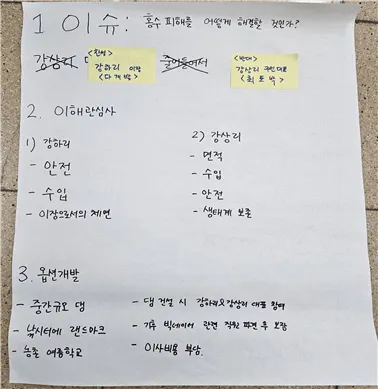 1 이슈: 홍수 피해를 어떻게 해결할 것인가?
강상리
<찬성>
강하리 이장
<다 개 발>
줄어들어서
<반대>
강상리 주민대표
<최 보 박>
2. 이해관심사
1) 강하리
- 안전
- 수입
- 이장으로서의 체면
2) 강상리
- 면적
- 수입
- 안전
- 생태계 보존
3. 옵션개발
- 중간규모 댐
- 낚시터에 랜드마크
- 농촌 여중학교
- 댐 건설 시 강하리&강상리 대표 참여
- 기후 빅데이터 관련 직원 파견 후 보장
- 이사비용 부담.